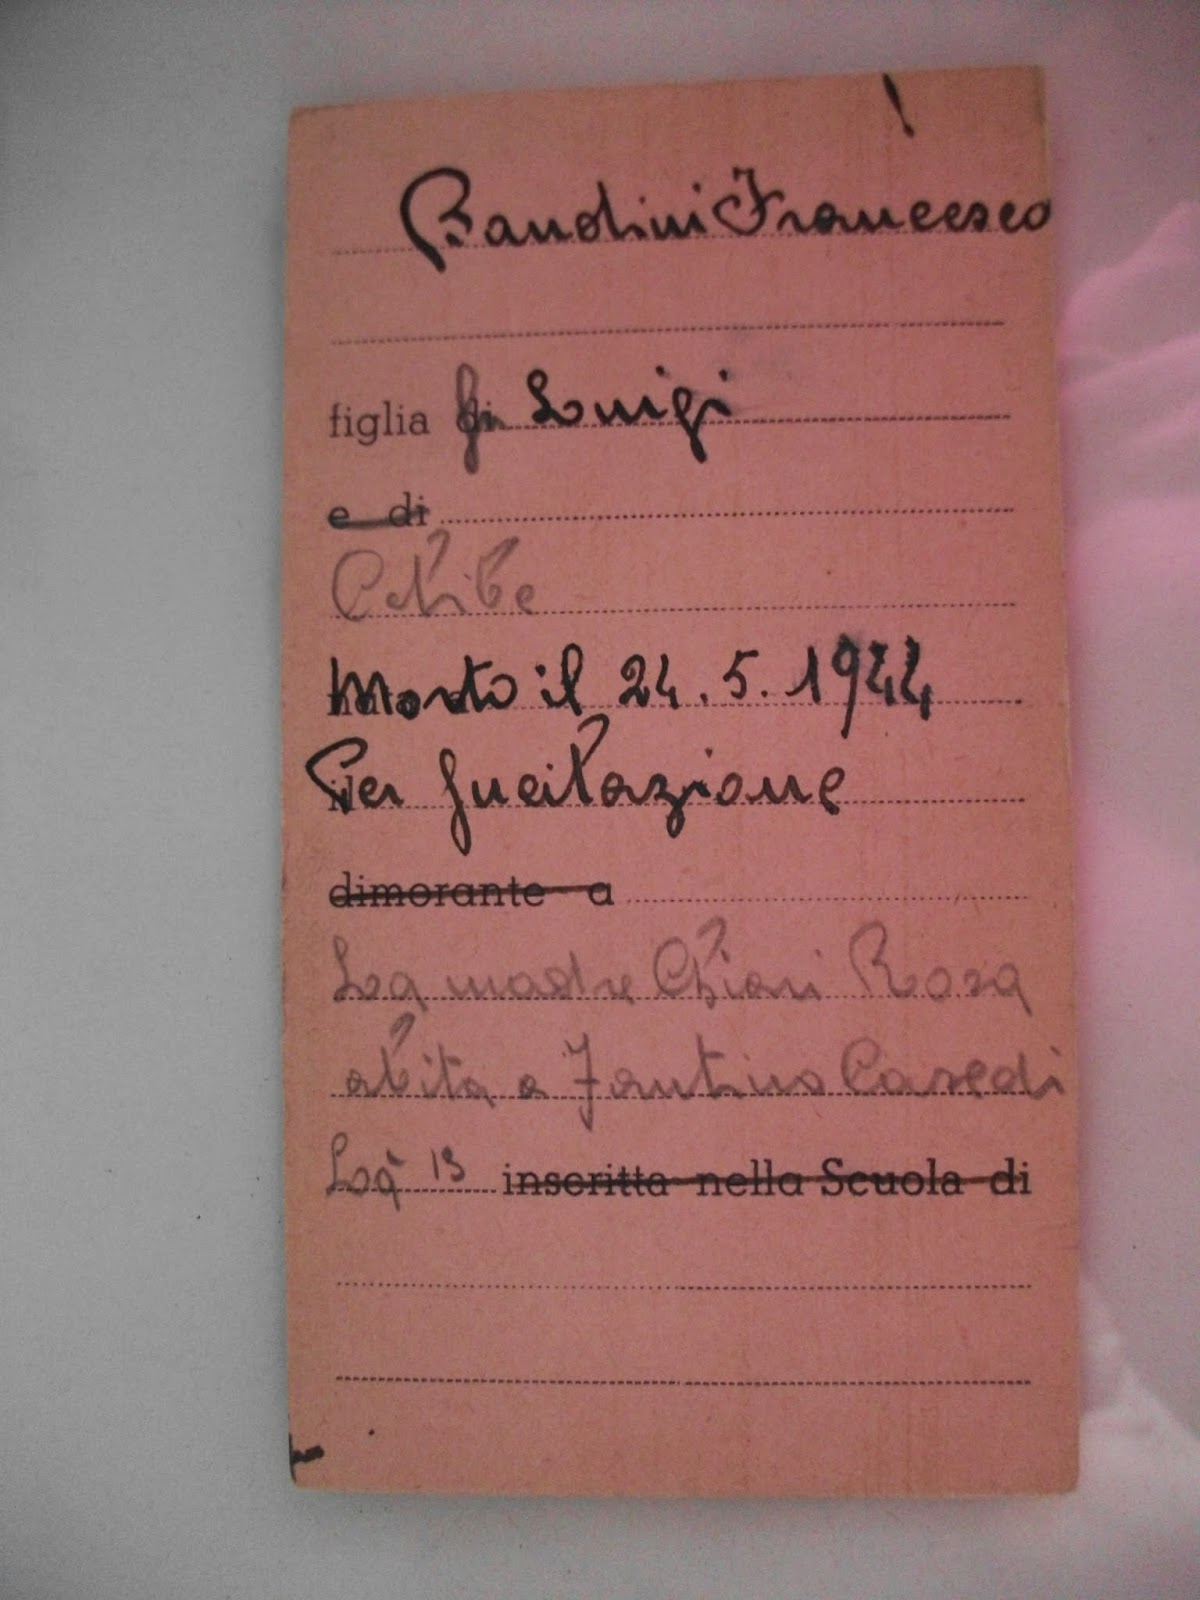 Bandini Francesco
figlia di Luigi
e di
Celibe
Morto il 24.5.1944
Per Fucilazione
dimorante a
La madre Chiari Rosa
abita a Fantino Casedi
Loq 13 inscritta nella Scuola di